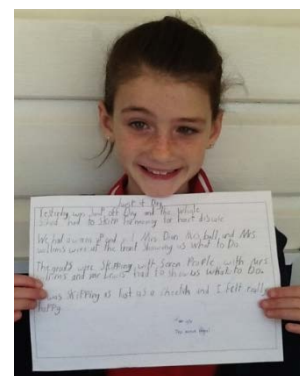 Jump off Day
Yesterday was Jump off Day and the whole
School had to Skipp for money for heart disease
We had a warm up and Miss Dian Mrs ball, and Mrs
williams were at the front showing us What to Do.
The events were Skipping with Some People with Mrs
and had to show us What to Do.
I was Skipping as hot as a Cheetah and I felt really
happy